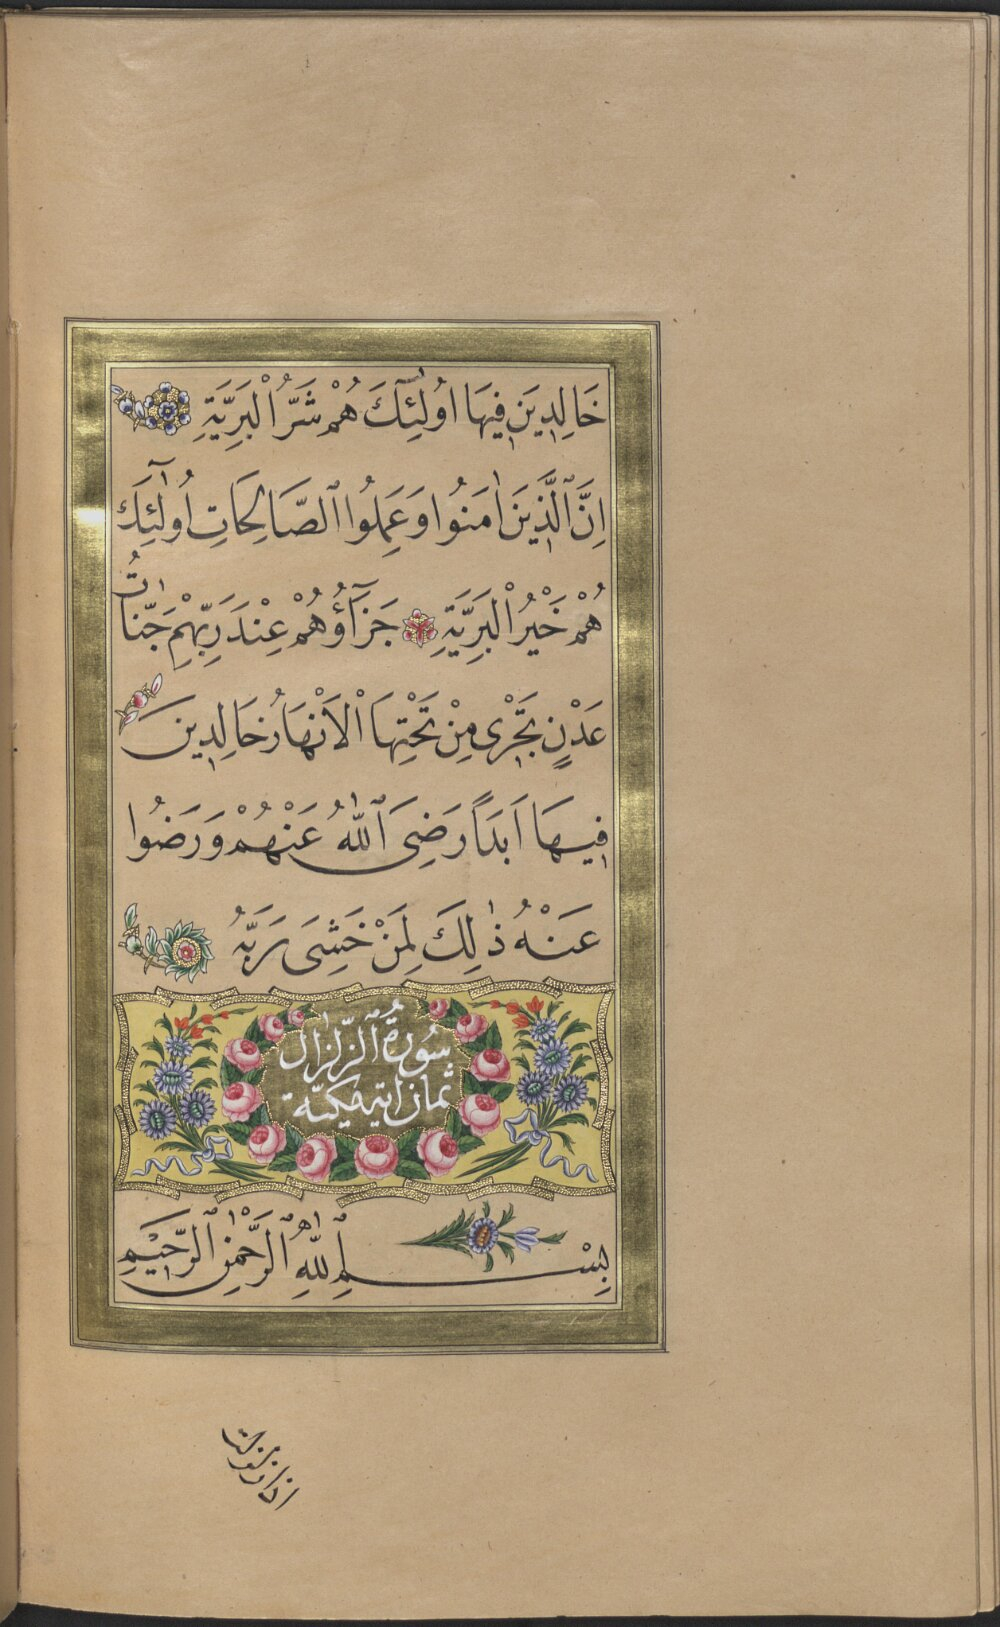 خَالِدِينَ فِيهَا اُولٰٓئِكَ هُمْ شَرُّ الْبَرِيَّةِ
اِنَّ ٱلَّذِينَ اٰمَنُوا وَعَمِلُوا ٱلصَّالِحَاتِ اُولٰٓئِكَ
هُمْ خَيْرُ الْبَرِيَّةِ جَزَآؤُهُمْ عِنْدَ رَبِّهِمْ جَنَّاتُ
عَدْنٍ تَجْرٖى مِنْ تَحْتِهَا الْاَنْهَارُ خَالِدِينَ
فِيهَا اَبَدًا رَضِىَ ٱللّٰهُ عَنْهُمْ وَرَضُوا
عَنْهُ ذٰلِكَ لِمَنْ خَشِىَ رَبَّهُ
سُورَةُ ٱلزِّلْزَال
ثمان اية مكيّة
بِسْمِ ٱللّٰهِ ٱلرَّحْمٰنِ ٱلرَّحِيمِ
اذا زلزلت